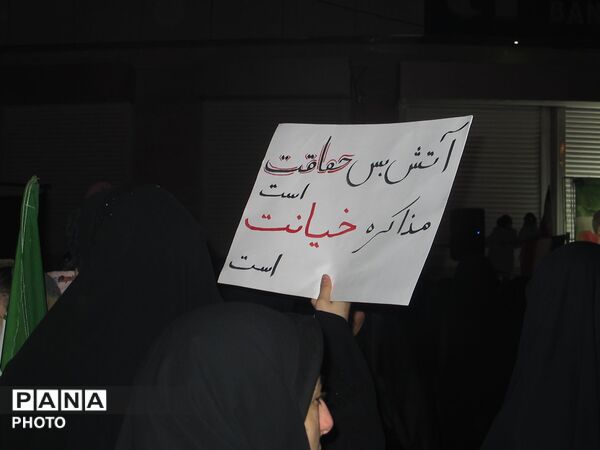 آتش بس حماقت
است
مذاکره خیانت
است
BAN
PANA
PHOTO